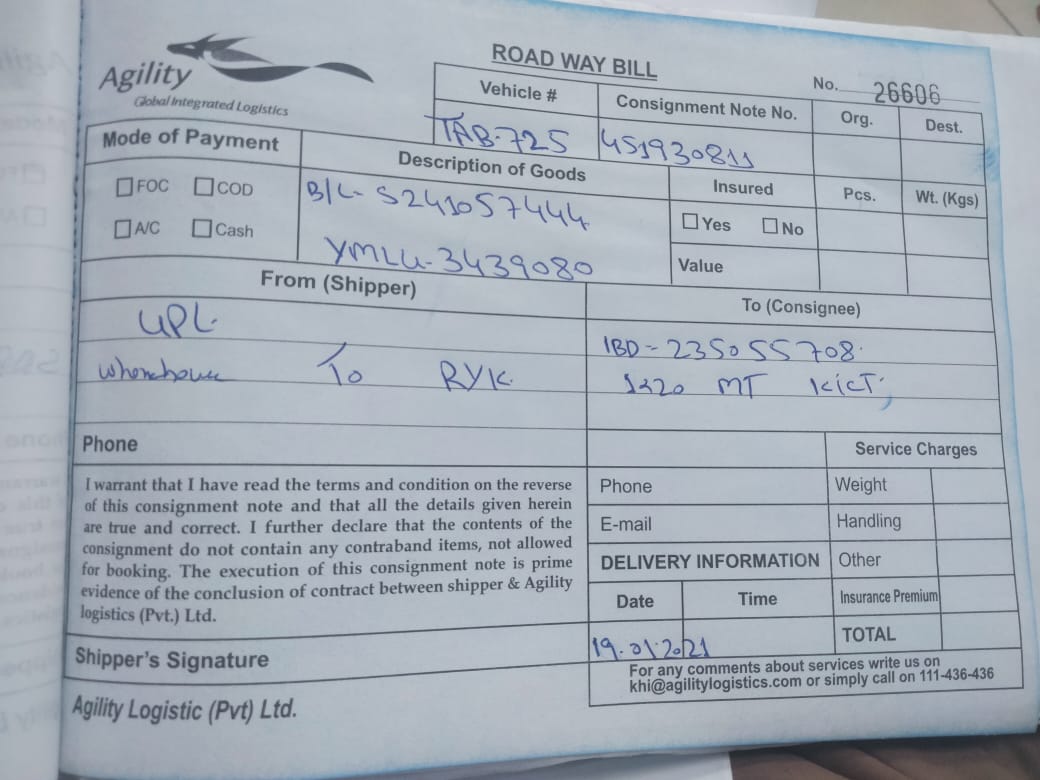 Agility
Global Integrated Logistics
ROAD WAY BILL
No. 26606
Vehicle #
Consignment Note No.
Org.
Dest.
TAB-725
451930811
Mode of Payment
FOC
COD
A/C
Cash
Description of Goods
B/L- S241057444
YMLU-3439080
Insured
Yes
No
Value
Pcs.
Wt. (Kgs)
From (Shipper)
UPL
To RYK
To (Consignee)
IBD - 235055708
MT KICT
Phone
I warrant that I have read the terms and condition on the reverse
of this consignment note and that all the details given herein
are true and correct. I further declare that the contents of the
consignment do not contain any contraband items, not allowed
for booking. The execution of this consignment note is prime
evidence of the conclusion of contract between shipper & Agility
logistics (Pvt.) Ltd.
Phone
E-mail
DELIVERY INFORMATION
Date
Time
19.01.2021
Service Charges
Weight
Handling
Other
Insurance Premium
TOTAL
Shipper's Signature
For any comments about services write us on
khi@agilitylogistics.com or simply call on 111-436-436
Agility Logistic (Pvt) Ltd.